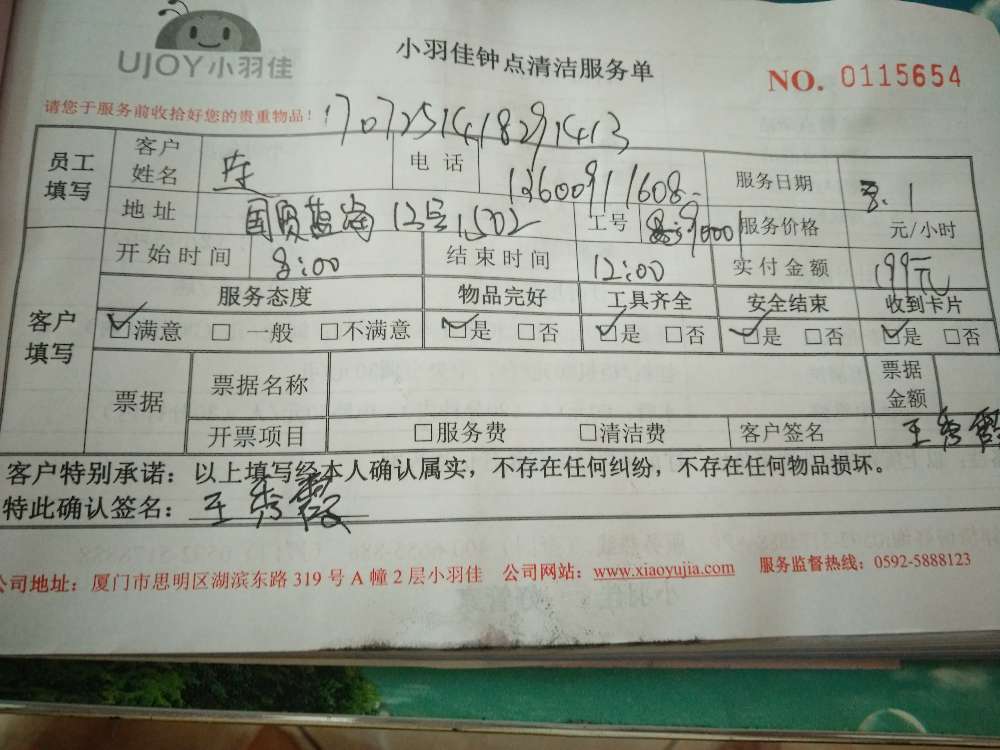 UJOY小羽佳
小羽佳钟点清洁服务单
NO. 0115654
请您于服务前收拾好您的贵重物品！
1707251418291413
员工填写 客户姓名 电话 13600911608 服务日期 8.1
地址 国贸蓝海12号1502 工号 9000 服务价格 元/小时
客户填写 开始时间 8:00 结束时间 12:00 实付金额 199元
服务态度 物品完好 工具齐全 安全结束 收到卡片
☑满意 □一般 □不满意 ☑是 □否 ☑是 □否 ☑是 □否 ☑是 □否
票据 票据名称 票据金额
开票项目 □服务费 □清洁费 客户签名 王秀霞
客户特别承诺：以上填写经本人确认属实，不存在任何纠纷，不存在任何物品损坏。
特此确认签名：王秀霞
公司地址：厦门市思明区湖滨东路 319 号 A 幢 2 层小羽佳 公司网站：www.xiaoyujia.com 服务监督热线：0592-5888123